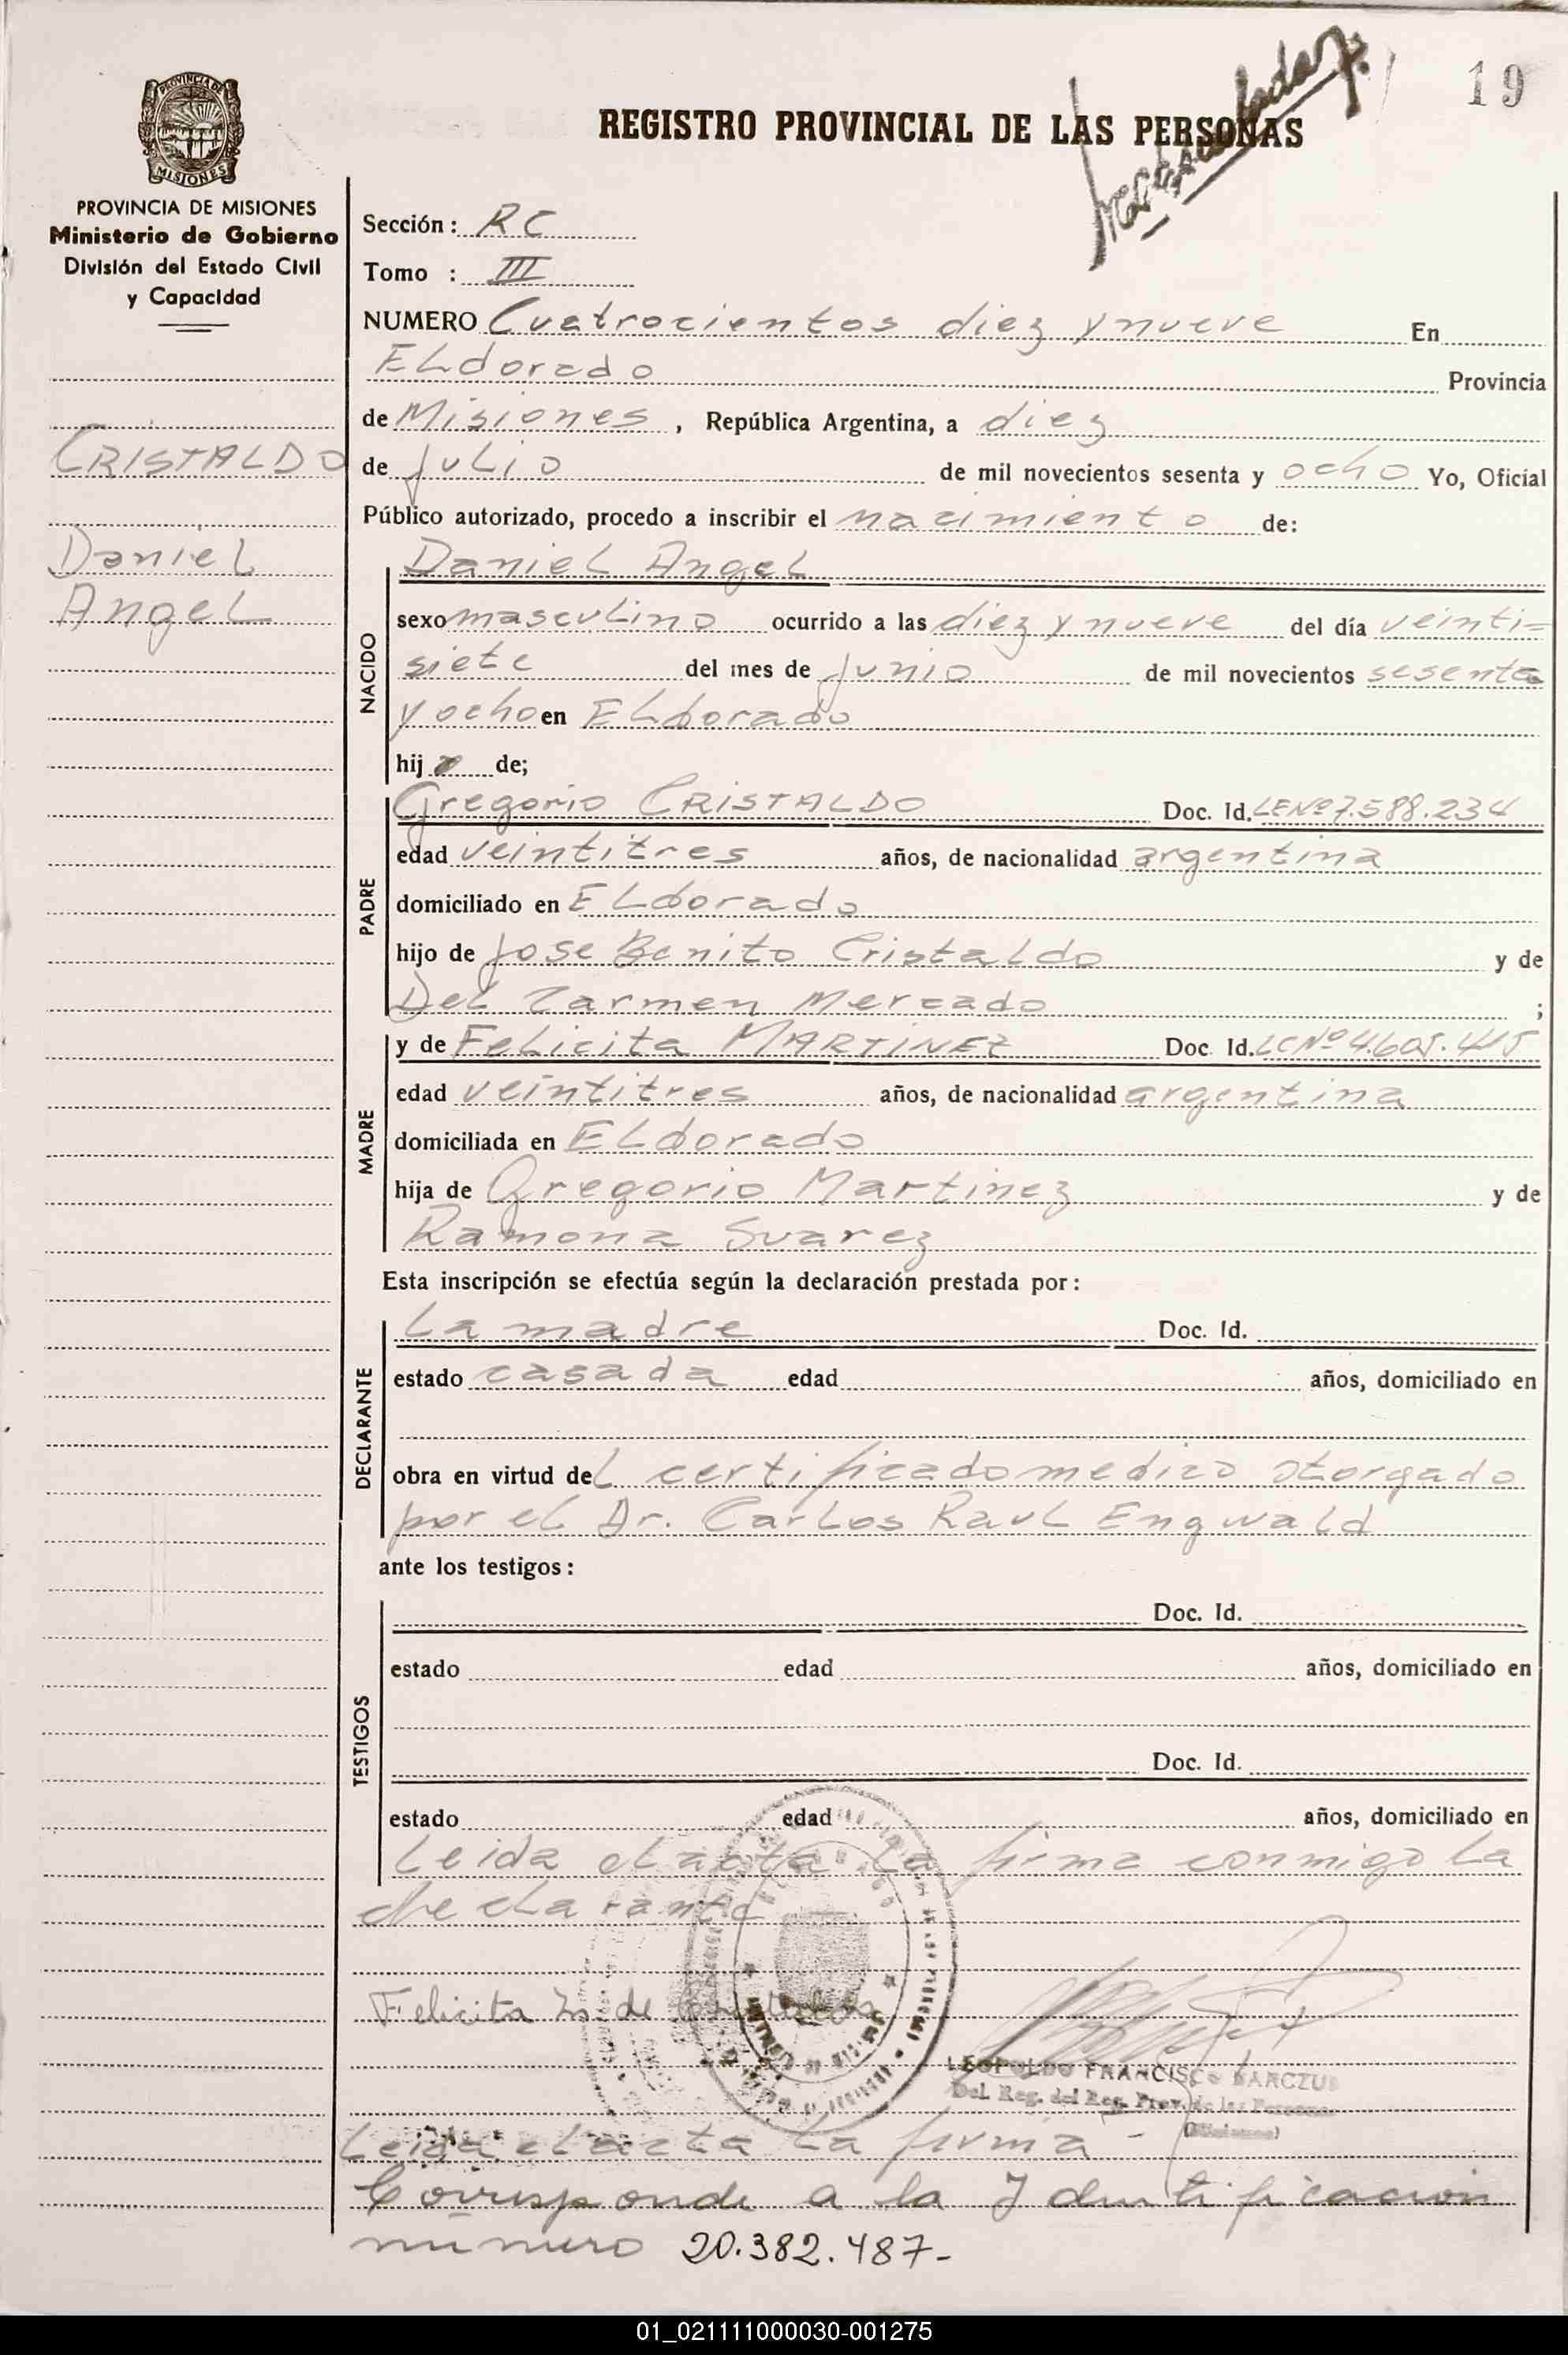 19
REGISTRO PROVINCIAL DE LAS PERSONAS
PROVINCIA DE
MISIONES
PROVINCIA DE MISIONES
Ministerio de Gobierno
División del Estado Civil
y Capacidad
CRISTALDO
Daniel
Angel
Sección: RC
Tomo : III
NUMERO Cuatrocientos diez y nueve En
ELdorado Provincia
de Misiones, República Argentina, a diez
de juLio de mil novecientos sesenta y ocho Yo, Oficial
Público autorizado, procedo a inscribir el nacimiento de:
NACIDO
DanieL AngeL
sexo mascuLino ocurrido a las diez y nueve del día veinti=
siete del mes de junio de mil novecientos sesenta
y ocho en ELdorado
hijo de;
PADRE
Gregorio CRISTALDO Doc. Id. LENº7.588.234
edad veintitres años, de nacionalidad argentina
domiciliado en ELdorado
hijo de Jose Benito Cristaldo y de
DeL Carmen Mercado ;
MADRE
y de FeLicita MARTINEZ Doc. Id. LCNº4.605.415
edad veintitres años, de nacionalidad argentina
domiciliada en ELdorado
hija de Gregorio Martinez y de
Ramona Suarez
Esta inscripción se efectúa según la declaración prestada por:
DECLARANTE
La madre Doc. Id.
estado casada edad años, domiciliado en
obra en virtud deL certificado medico otorgado
por eL Dr. CarLos RauL Engwald
ante los testigos:
TESTIGOS
Doc. Id.
estado edad años, domiciliado en
Doc. Id.
estado edad años, domiciliado en
Leida eL acta La firma conmigo La
decLarante
Felicita M. de Cristaldo
LEOPOLDO FRANCISCO
Del. Reg. del Reg. Prov. de las Personas
(Misiones)
Leida eL acta La firma -
Corresponde a la Identificacion
número 20.382.487-
01_021111000030-001275